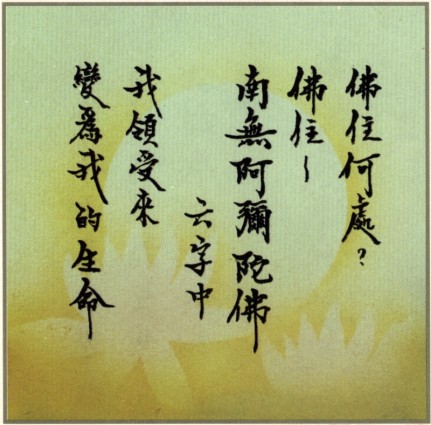 佛住何處？
佛住～
南無阿彌陀佛
六字中
我領受來
變爲我的生命